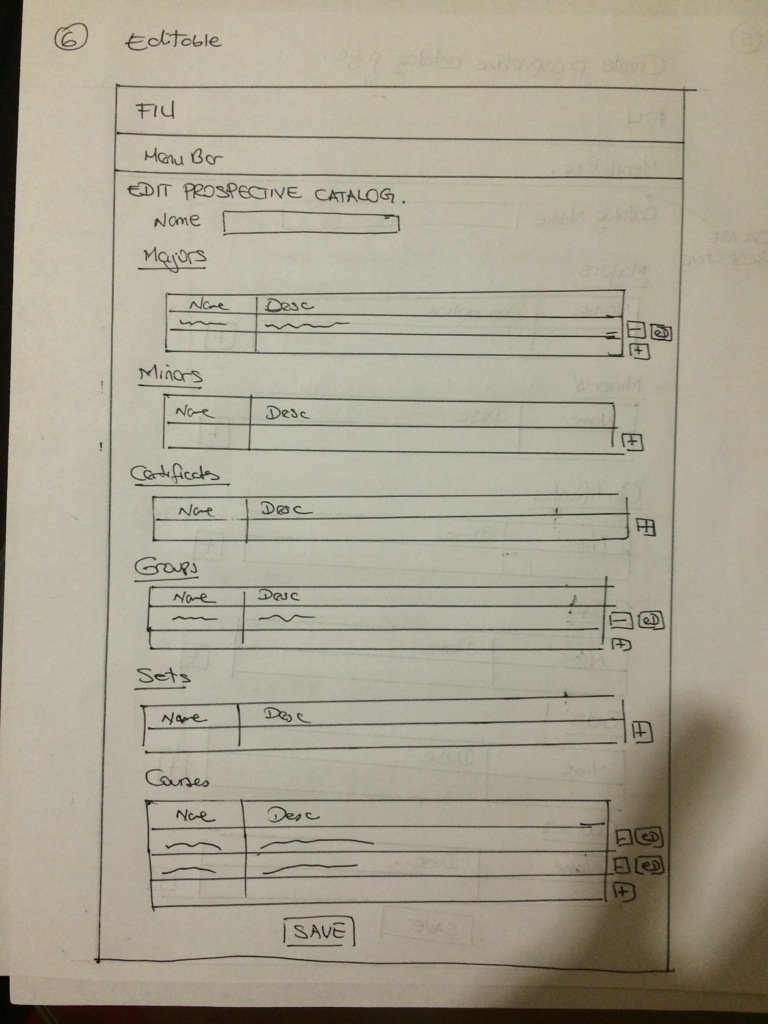 6 Editable
FIU
Menu Bar
EDIT PROSPECTIVE CATALOG.
Name
Majors
Name Desc
- ED
+
Minors
Name Desc
+
Certificates
Name Desc
+
Groups
Name Desc
- ED
+
Sets
Name Desc
+
Courses
Name Desc
- ED
- ED
+
SAVE